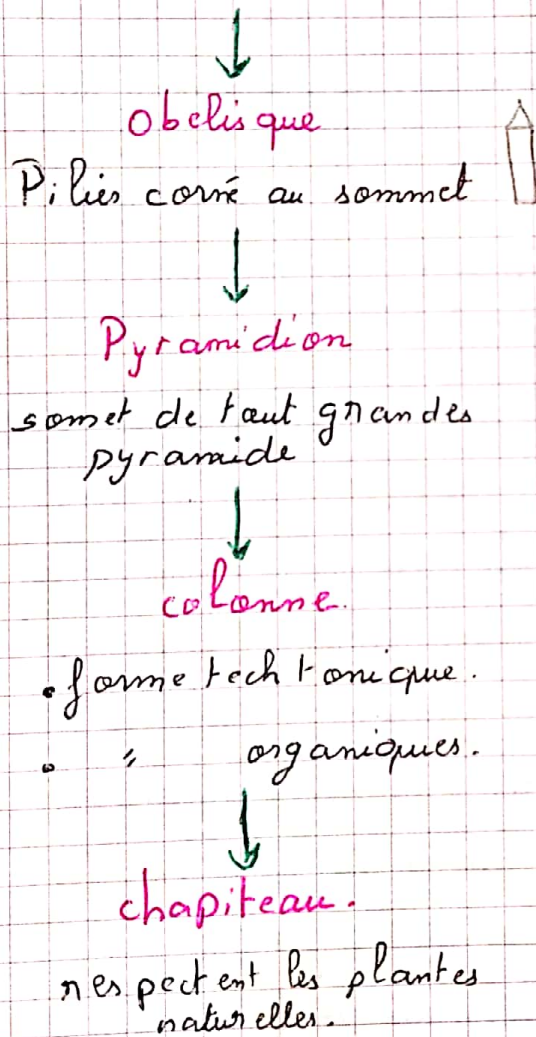 Obelisque
Piliés corné au sommet
Pyramidion
somet de taut grandes
pyramide
colonne.
• forme techtonique.
• " organiques.
chapiteau.
respectent les plantes
naturelles.